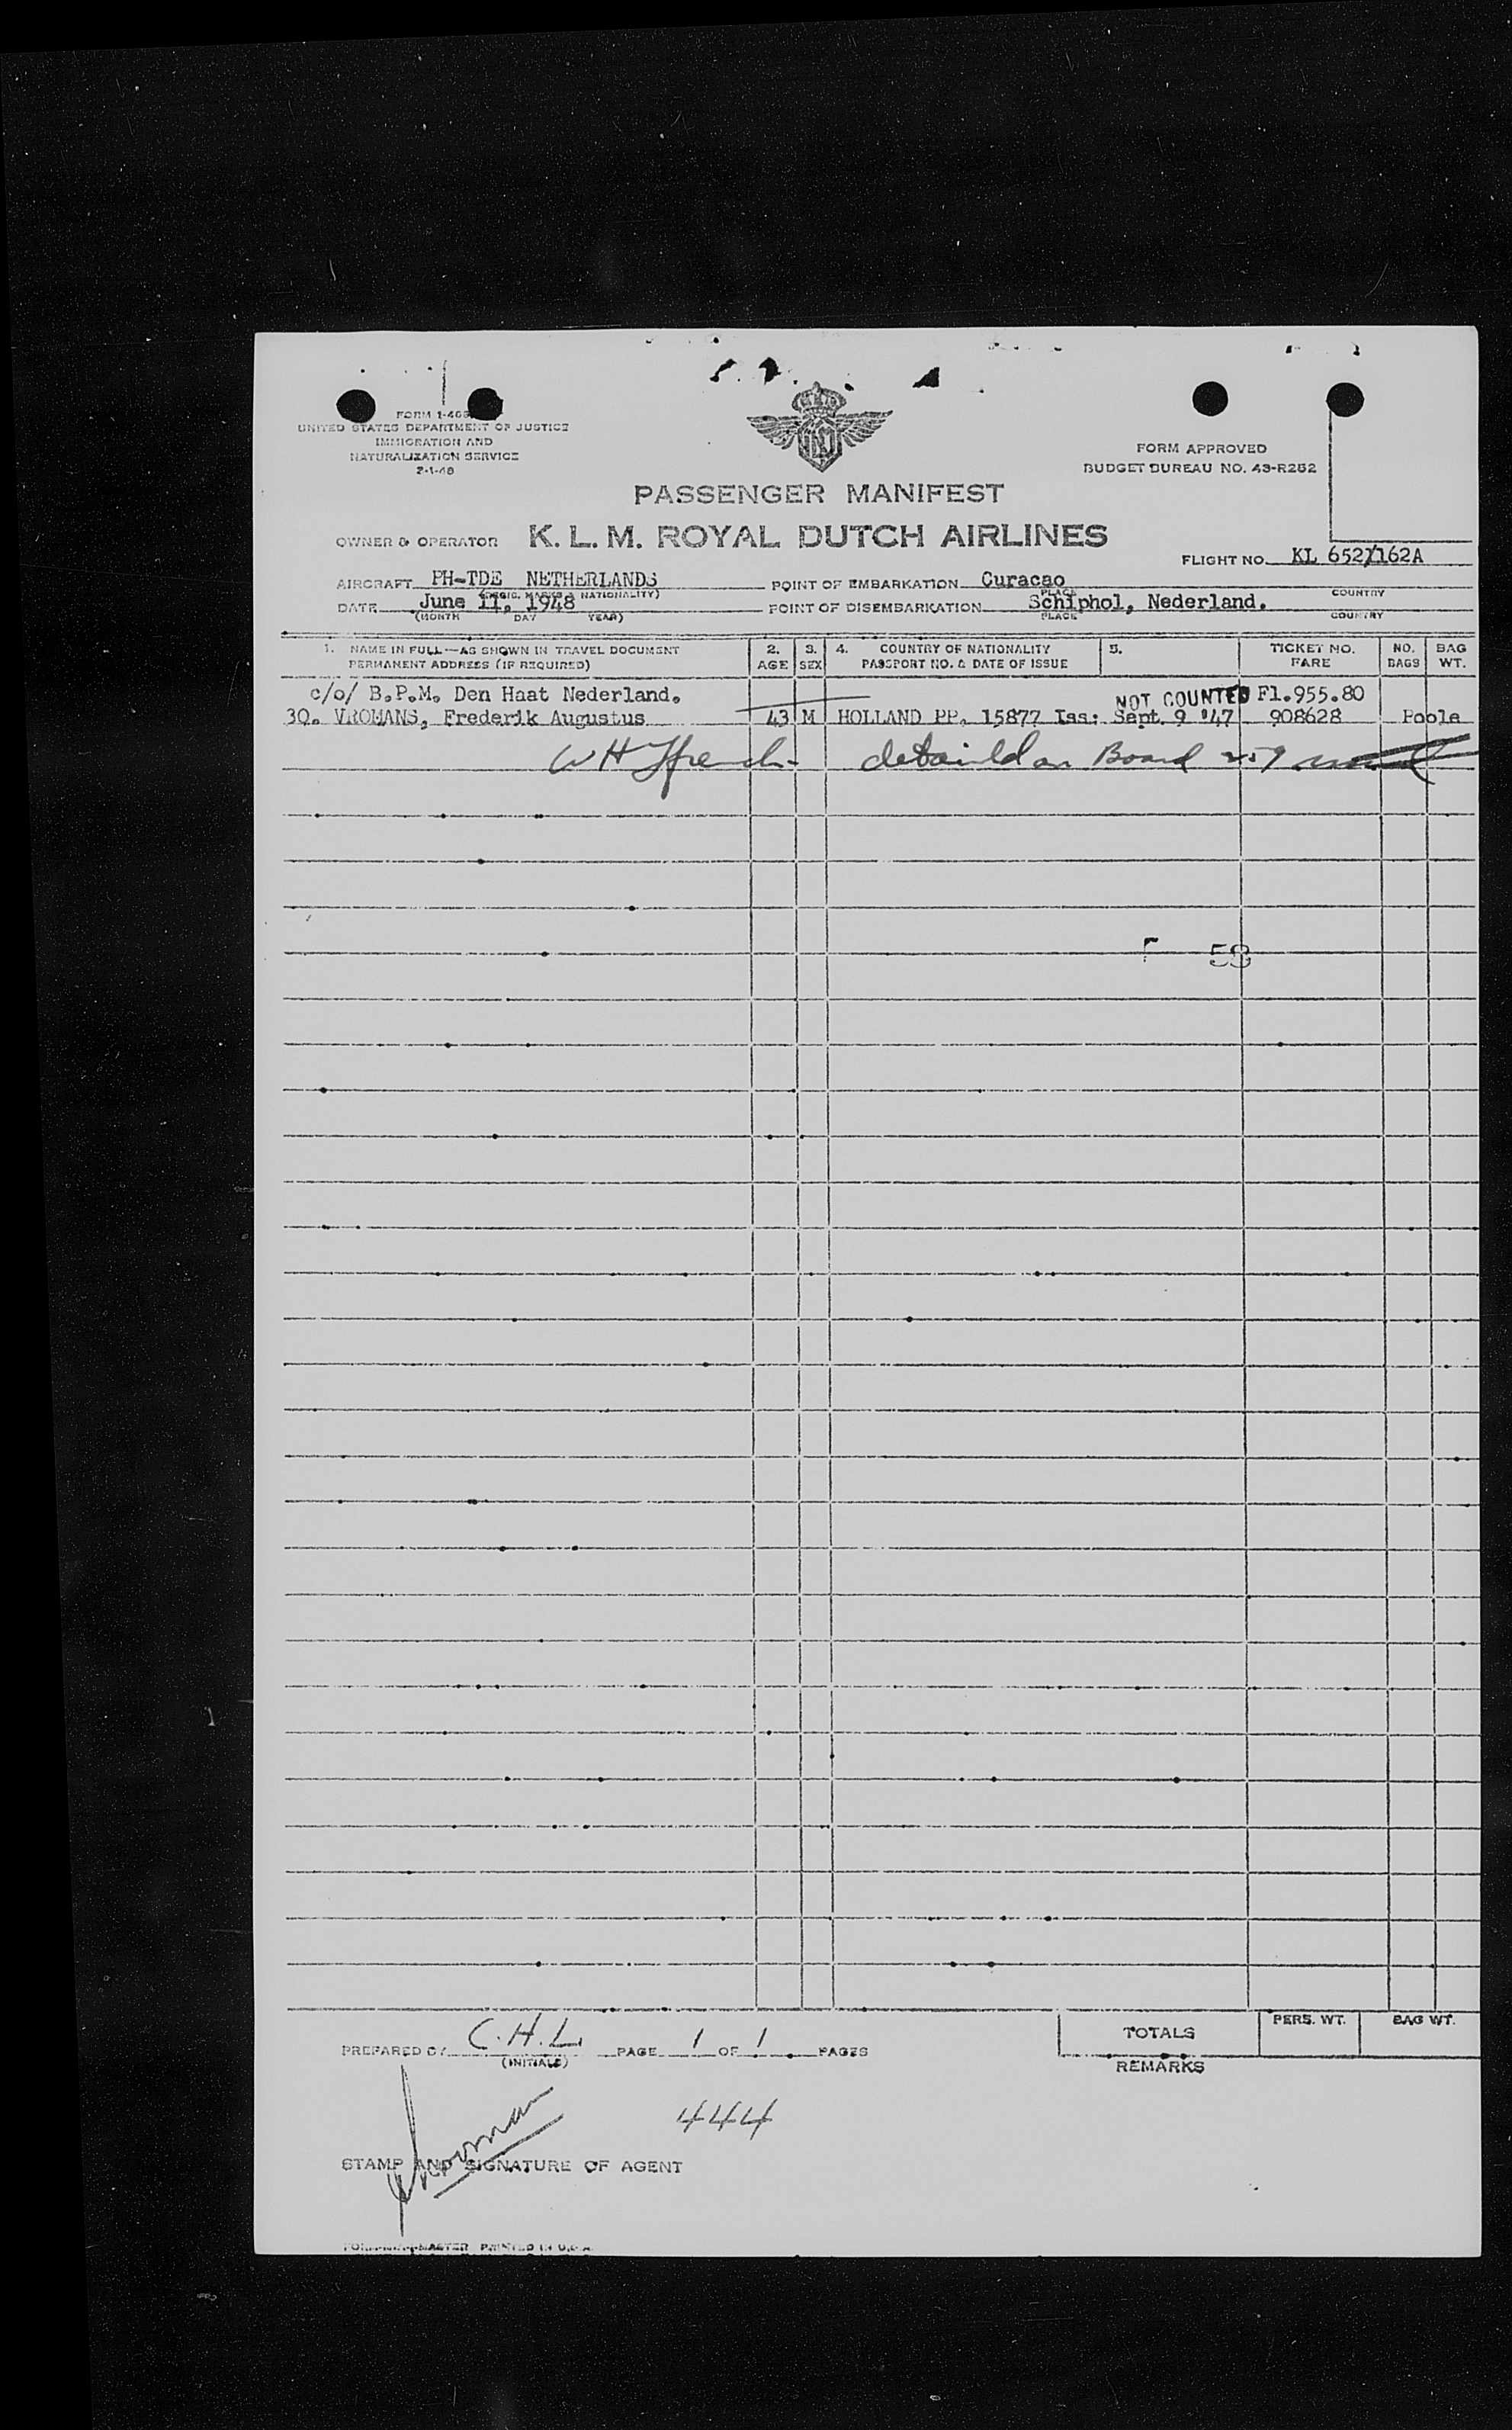 UNITED STATES DEPARTMENT OF JUSTICE
IMMIGRATION AND
NATURALIZATION SERVICE
FORM APPROVED
BUDGET BUREAU NO. 43-R252
PASSENGER MANIFEST
OWNER & OPERATOR K. L. M. ROYAL DUTCH AIRLINES
FLIGHT NO. KL 652/162A
AIRCRAFT PH-TDE NETHERLANDS POINT OF EMBARKATION Curacao
PLACE COUNTRY
DATE June 11, 1948 POINT OF DISEMBARKATION Schiphol, Nederland.
(MONTH DAY YEAR) PLACE COUNTRY
1. NAME IN FULL—AS SHOWN IN TRAVEL DOCUMENT 2. 3. 4. COUNTRY OF NATIONALITY 5. TICKET NO. NO. BAG
PERMANENT ADDRESS (IF REQUIRED) AGE SEX PASSPORT NO. & DATE OF ISSUE FARE BAGS WT.
c/o/ B.P.M. Den Haat Nederland. NOT COUNTED Fl.955.80
30. VROMANS, Frederik Augustus 43 M HOLLAND PP. 15877 Iss: Sept. 9 '47 908628 Poole
W H detaild on Board
58
PREPARED BY C.H.L. PAGE 1 OF 1 PAGES
(INITIALS)
TOTALS PERS. WT. BAG WT.
REMARKS
444
STAMP AND SIGNATURE OF AGENT